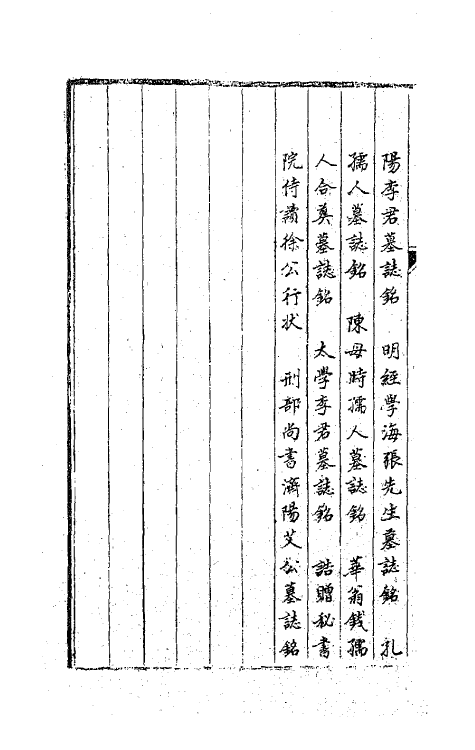 陽李君墓誌銘　明經學海張先生墓誌銘　孔
孺人墓誌銘　陳母時孺人墓誌銘　華翁錢孺
人合奠墓誌銘　太學李君墓誌銘　誥贈秘書
院侍讀徐公行状　刑部尚書濟陽艾公墓誌銘